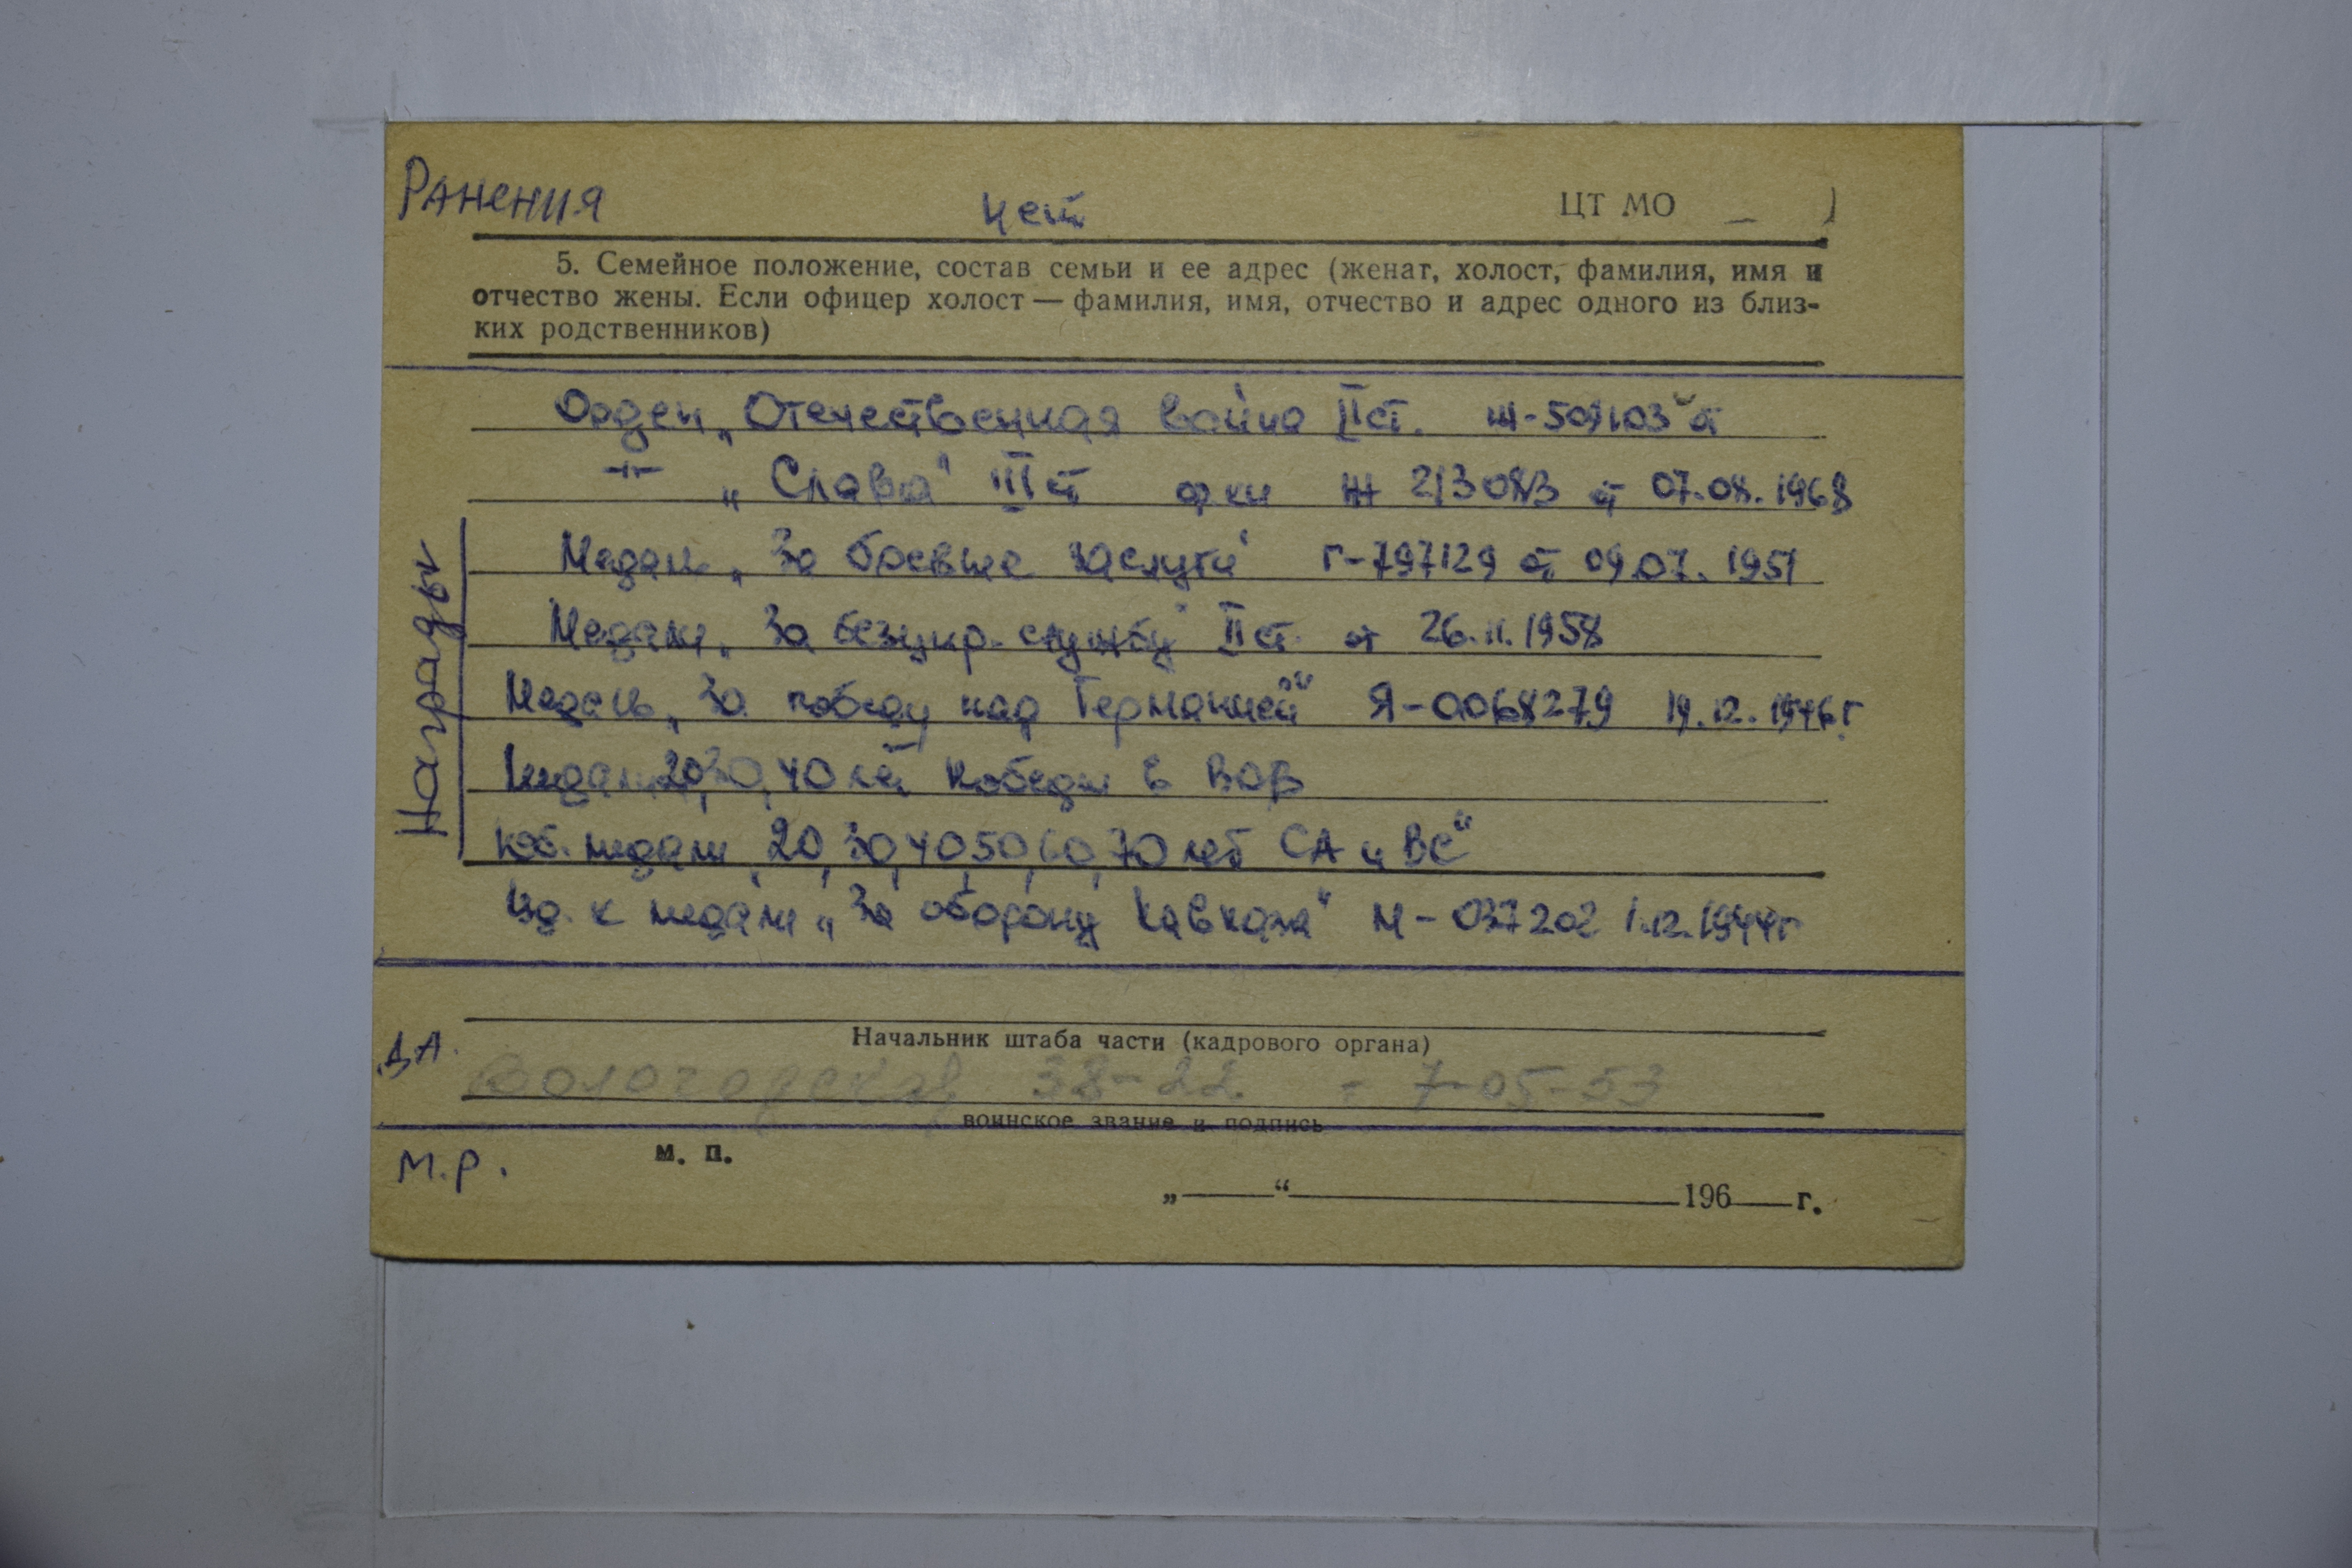 Ранения нет ЦТ МО
5. Семейное положение, состав семьи и ее адрес (женат, холост, фамилия, имя и
отчество жены. Если офицер холост — фамилия, имя, отчество и адрес одного из близ-
ких родственников)
Награды
Орден „Отечественная война IIст.
–"– „Слава" III ст Ж 213083 от 07.08.1968
Медаль „За боевые заслуги" Г-797129 от 09.07.1951
Медаль „За безупр. службу" II ст. от 26.11.1958
Медаль „За победу над Германией" Я-0068279 19.12.1946г.
Медали 20,30,40 лет Победы в ВОВ
Юб. медали 20,30,40,50,60,70 лет СА и ВС"
Уд. к медали „За оборону Кавказа" М-037202 1.12.1944г
Начальник штаба части (кадрового органа)
Д.А. Вологодская 38-22 - 7-05-53
воинское звание и подпись
М.Р. м. п.
„ “ 196 г.